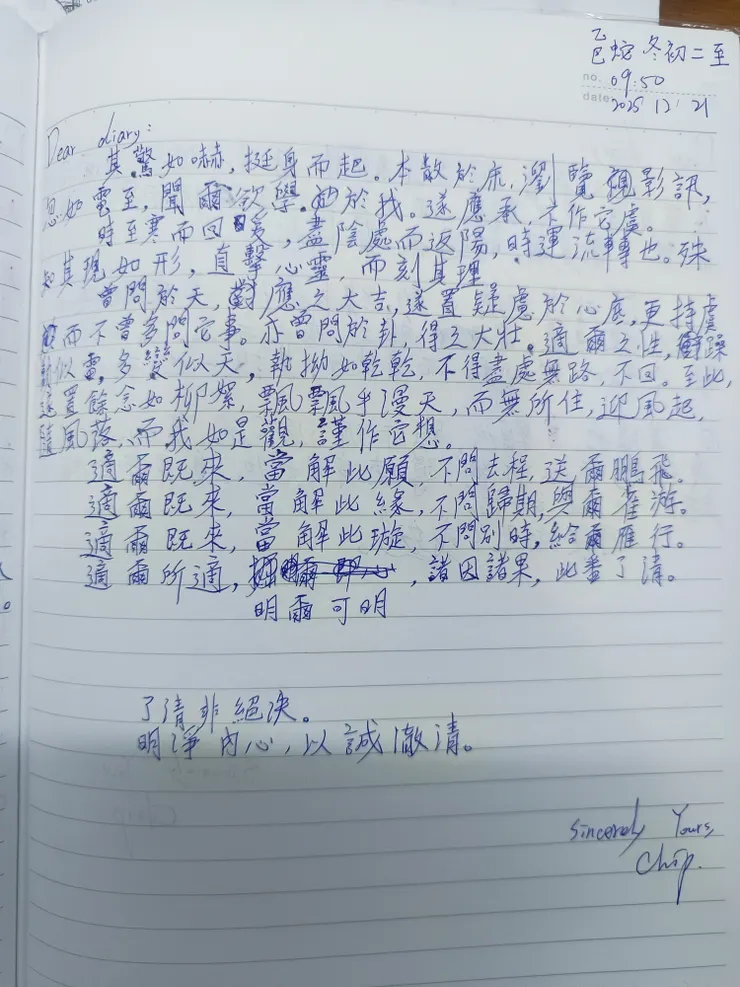 乙巳蛇 冬初二至
no. 09:50
date 2025 12 21
Dear diary:
其驚如嚇，挺身而起。本散於床，瀏覽視影訊，
忽如電至，聞爾欲學。於我。遂應承，不作它虞。
時至寒而回，盡陰處而返陽，時運流轉也。殊
其現如形，直擊心靈，而刻其理
曾問於天，對應之大吉，遂置疑慮於心底，更持虔
而不曾多問它事。亦曾問於卦，得之大壯。適爾之性，躁
似雷，多變似天，執拗如乾乾，不得盡處無路，不回。至此，
遂置餘念如柳絮，飄飄乎漫天，而無所住，迎風起，
隨風落，而我如是觀，謹作它想。
適爾既來，當解此願，不問去程，送爾鵬飛。
適爾既來，當解此緣，不問歸期，與爾雀游。
適爾既來，當解此璇，不問別時，給爾雁行。
適爾所適，，諸因諸果，此番了清。
明爾可明
了清非絕決。
明淨內心，以誠澈清。
Sincerely Yours,
Chip.